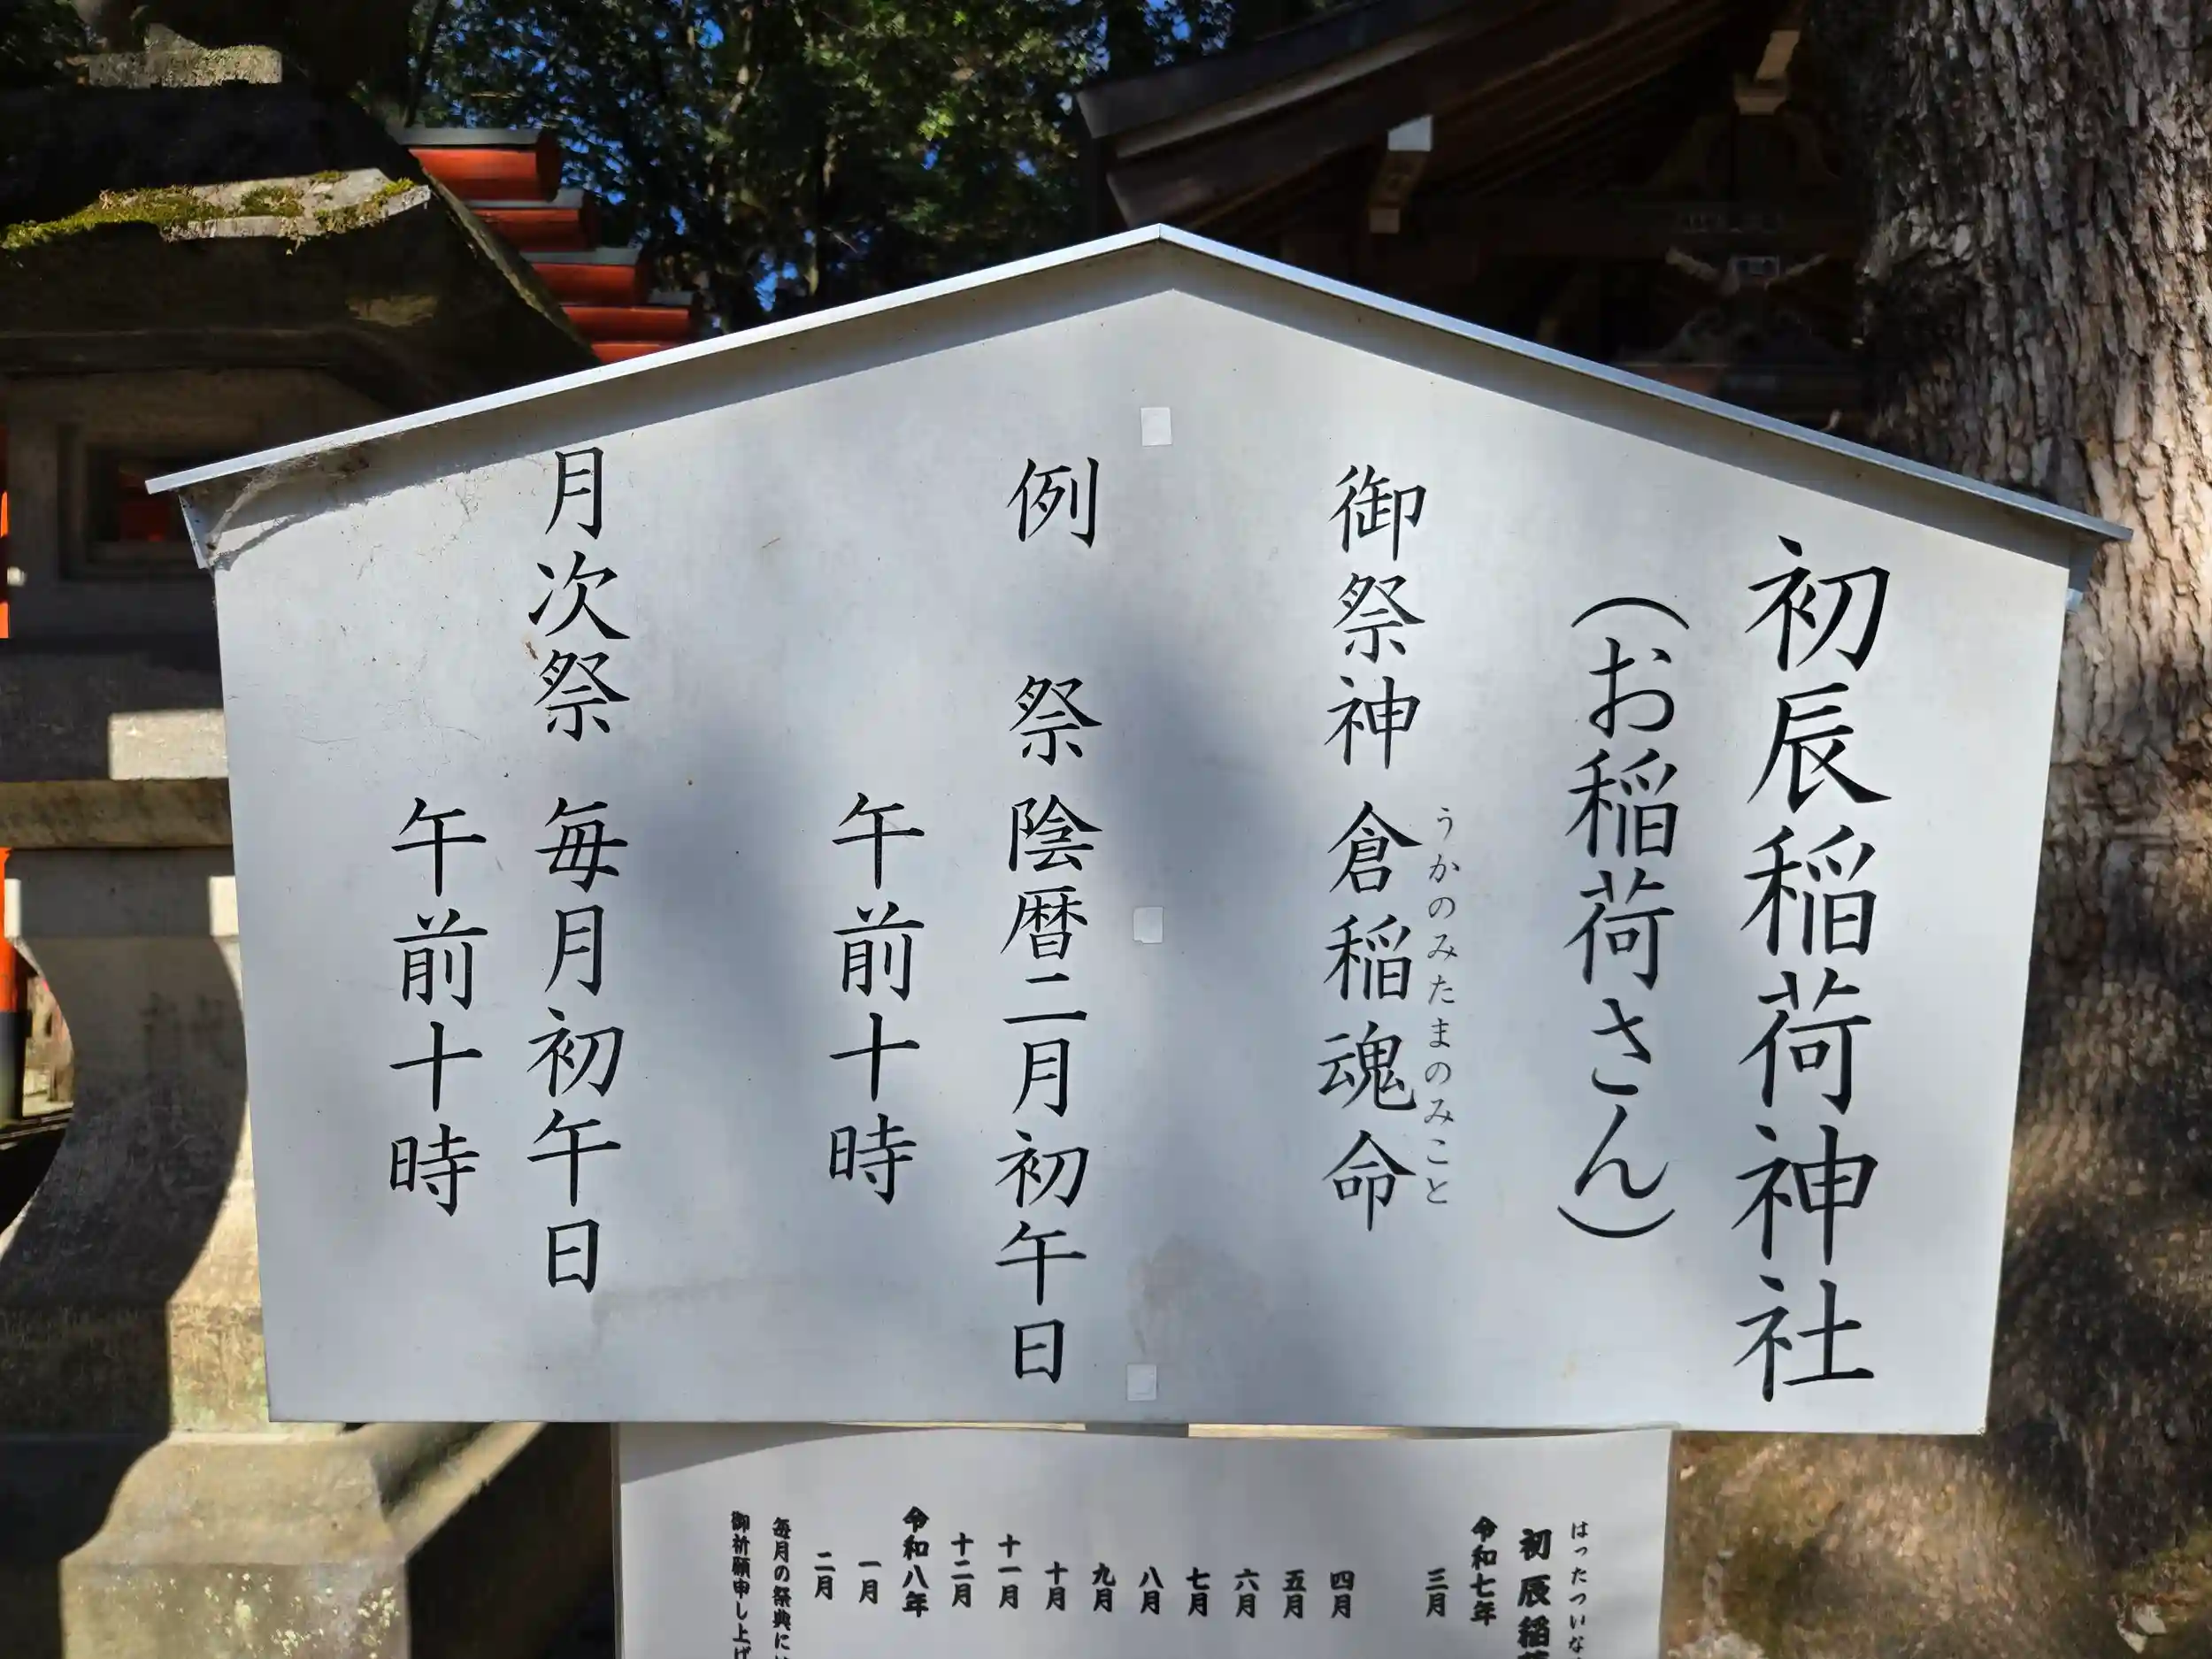 初辰稲荷神社
（お稲荷さん）
うかのみたまのみこと
御祭神 倉稲魂命
例　祭 陰暦二月初午日
午前十時
月次祭 毎月初午日
午前十時
はったついな
初辰稲
令和七年
三月
四月
五月
六月
七月
八月
九月
十月
十一月
十二月
令和八年
一月
二月
毎月の祭典に
御祈願申し上げ